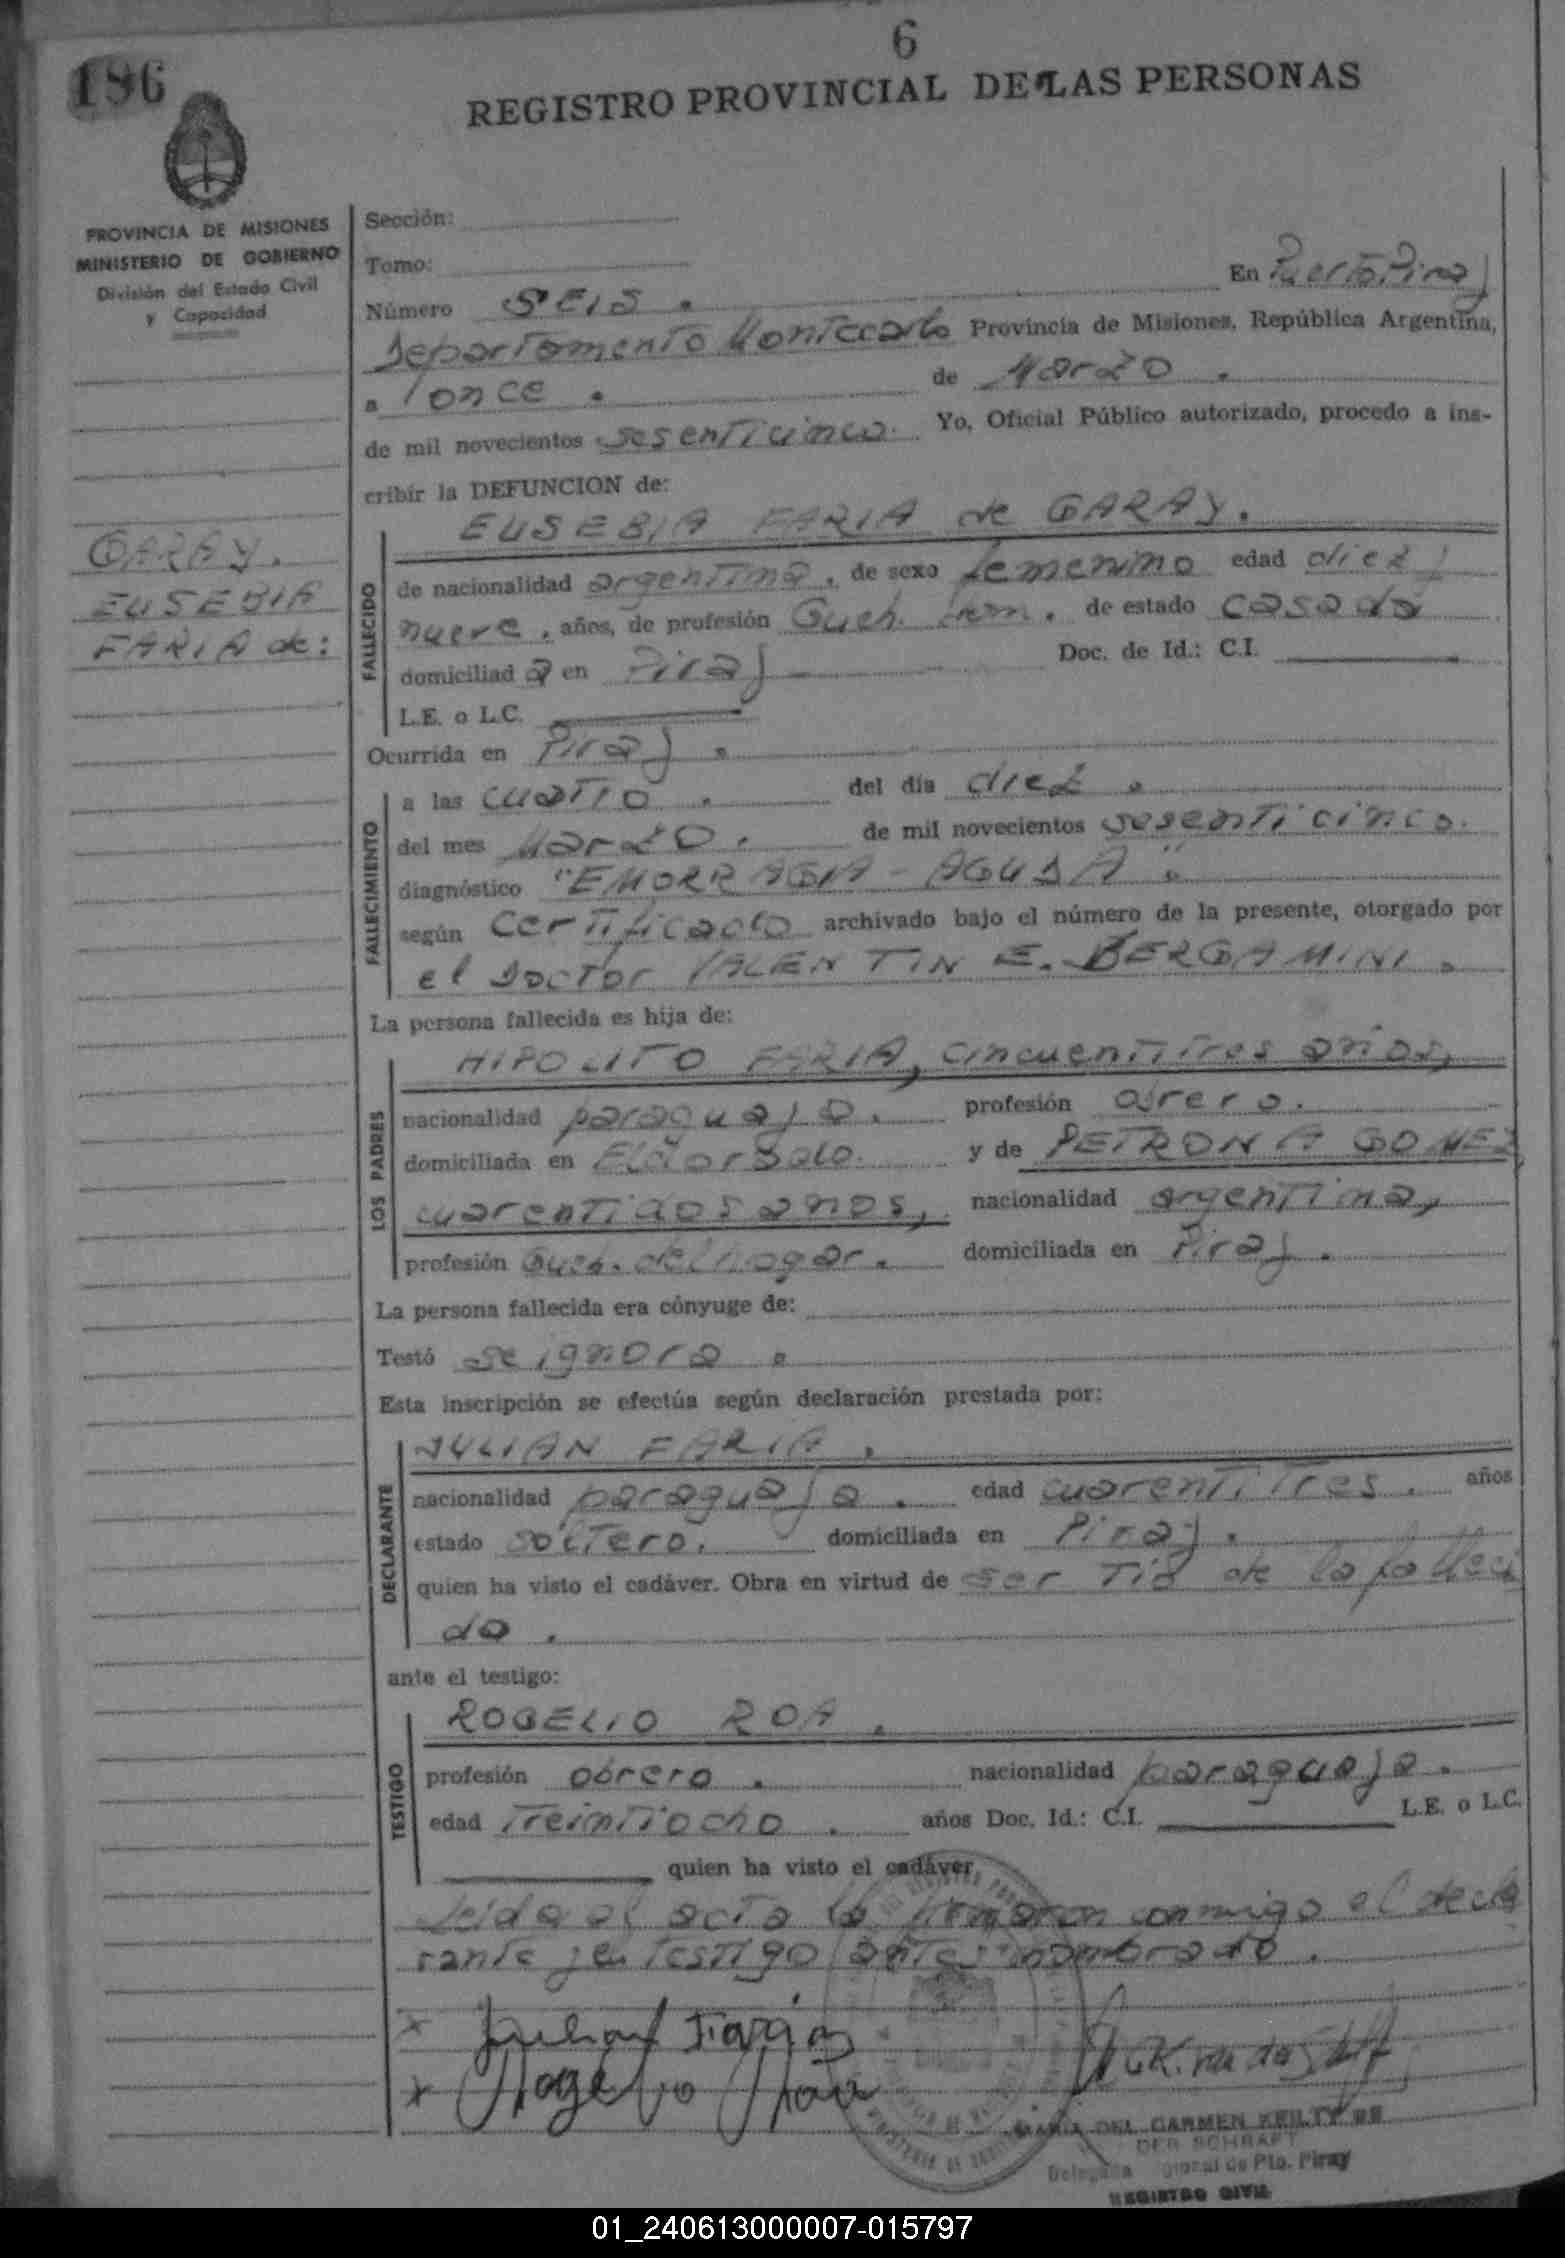 6
196
REGISTRO PROVINCIAL DE LAS PERSONAS
PROVINCIA DE MISIONES
MINISTERIO DE GOBIERNO
División del Estado Civil
y Capacidad
GARAY.
EUSEBIA
FARIA de:
Sección:
Tomo:
Número SEIS. En Puerto Piray
Departamento Montecarlo Provincia de Misiones, República Argentina,
a once. de Marzo.
de mil novecientos sesenticinco. Yo, Oficial Público autorizado, procedo a ins-
cribir la DEFUNCION de:
EUSEBIA FARIA de GARAY.
FALLECIDO
de nacionalidad argentina, de sexo femenino edad diez y
nueve, años, de profesión Queh. dom. de estado casada
domiciliad a en Piray Doc. de Id.: C.I.
L.E. o L.C.
Ocurrida en Piray.
FALLECIMIENTO
a las cuatro. del día diez.
del mes Marzo. de mil novecientos sesenticinco.
diagnóstico "EMORRAGIA - AGUDA".
según certificado archivado bajo el número de la presente, otorgado por
el Doctor VALENTIN E. BERGAMINI.
La persona fallecida es hija de:
HIPOLITO FARIA, cincuentitres años,
LOS PADRES
nacionalidad paraguaya. profesión obrero.
domiciliada en Eldorado. y de PETRONA GOMEZ,
cuarentidos años, nacionalidad argentina,
profesión Queh. del hogar. domiciliada en Piray.
La persona fallecida era cónyuge de:
Testó se ignora.
Esta inscripción se efectúa según declaración prestada por:
JULIAN FARIA.
DECLARANTE
nacionalidad paraguaya. edad cuarentitres. años
estado soltero. domiciliada en Piray.
quien ha visto el cadáver. Obra en virtud de ser tio de la falleci
da.
ante el testigo:
ROGELIO ROA.
TESTIGO
profesión obrero. nacionalidad paraguaya.
edad treintiocho. años Doc. Id.: C.I. L.E. o L.C.
quien ha visto el cadáver,
Leida el acta la firmaron conmigo el decla
rante y el testigo antes nombrado.
x Julian Faria
x Rogelio Roa
MARIA DEL CARMEN KEILTY DE
DER SCHRAFT
Delegada Regional de Pto. Piray
REGISTRO CIVIL
01_240613000007-015797